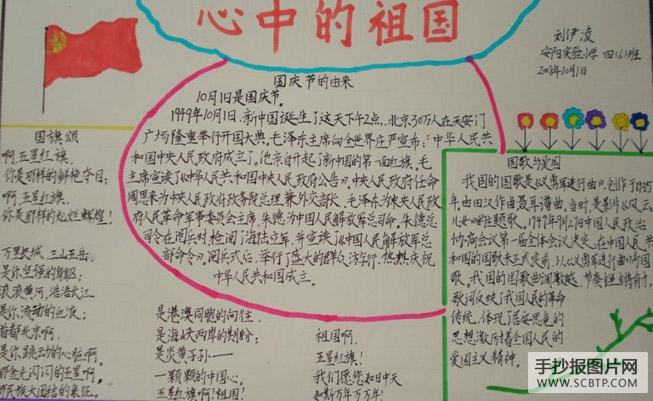 心中的祖国
刘伊凌
安阳实验小学 四(6)班
2008年10月1日
国旗颂
啊,五星红旗,
你是那样的鲜艳夺目;
啊,五星红旗,
你是那样的灿烂辉煌!
万里长城,三山五岳,
是你坚强的身躯;
滚滚黄河,浩浩长江,
是你流动的血液;
首都北京啊,
是你跳动的心脏啊,
那金光闪闪的五星啊,
那民族大团结的象征。
国庆节的由来
10月1日是国庆节。
1949年10月1日,新中国诞生了这天下午2点,北京30万人在天安门
广场隆重举行开国大典。毛泽东主席向全世界庄严宣布:"中华人民共
和国中央人民政府成立了。"他亲自升起了新中国的第一面红旗。毛
主席宣读了《中华人民共和国中央人民政府公告》。中央人民政府任命
周恩来为中央人民政府政务院总理兼外交部长,毛泽东为中央人民政
府人民革命军事委员会主席,朱德为中国人民解放军总司令。朱德总
司令在阅兵时,检阅了海陆空军,并宣读了《中国人民解放军总
部命令》。阅兵式后,举行了盛大的群众游行,热烈庆祝
中华人民共和国成立。
是港澳同胞的向往,
是海峡两岸的期盼;
是炎黄子孙——
一颗颗的中国心。
五星红旗啊!祖国!
祖国啊,
五星红旗!
我们愿您如日中天
如斯万年万万年!
国歌与爱国
我国的国歌是《义勇军进行曲》,创作于1935
年,由田汉作曲聂耳谱曲,当时是影片《风云
儿女》的主题歌。1949年9月27日中国人民政治
协商会议第一届全体会议决定,在中国人民共
和国的国歌未正式定前,以《义勇军进行曲》为国
歌。我国的国歌曲调激越,节奏
歌词反映了我国人民的革命
传统,体现了居安思危的
思想激励着全国人民的
爱国主义精神。
手抄报图片网
WWW.SCBTP.COM